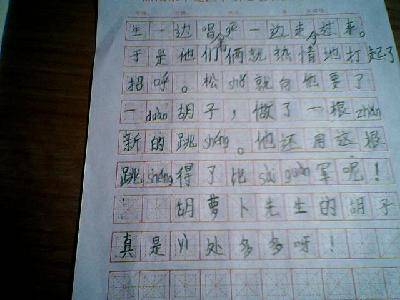 生一边唱歌一边走过来。
于是他们俩就热情地打起了
招呼。松shǔ就向他要了
一duàn胡子，做了一根zhǎn
新的跳shéng。他还用这根
跳shéng得了比sài guàn军呢！
胡萝卜先生的胡子
真是yì处多多呀！